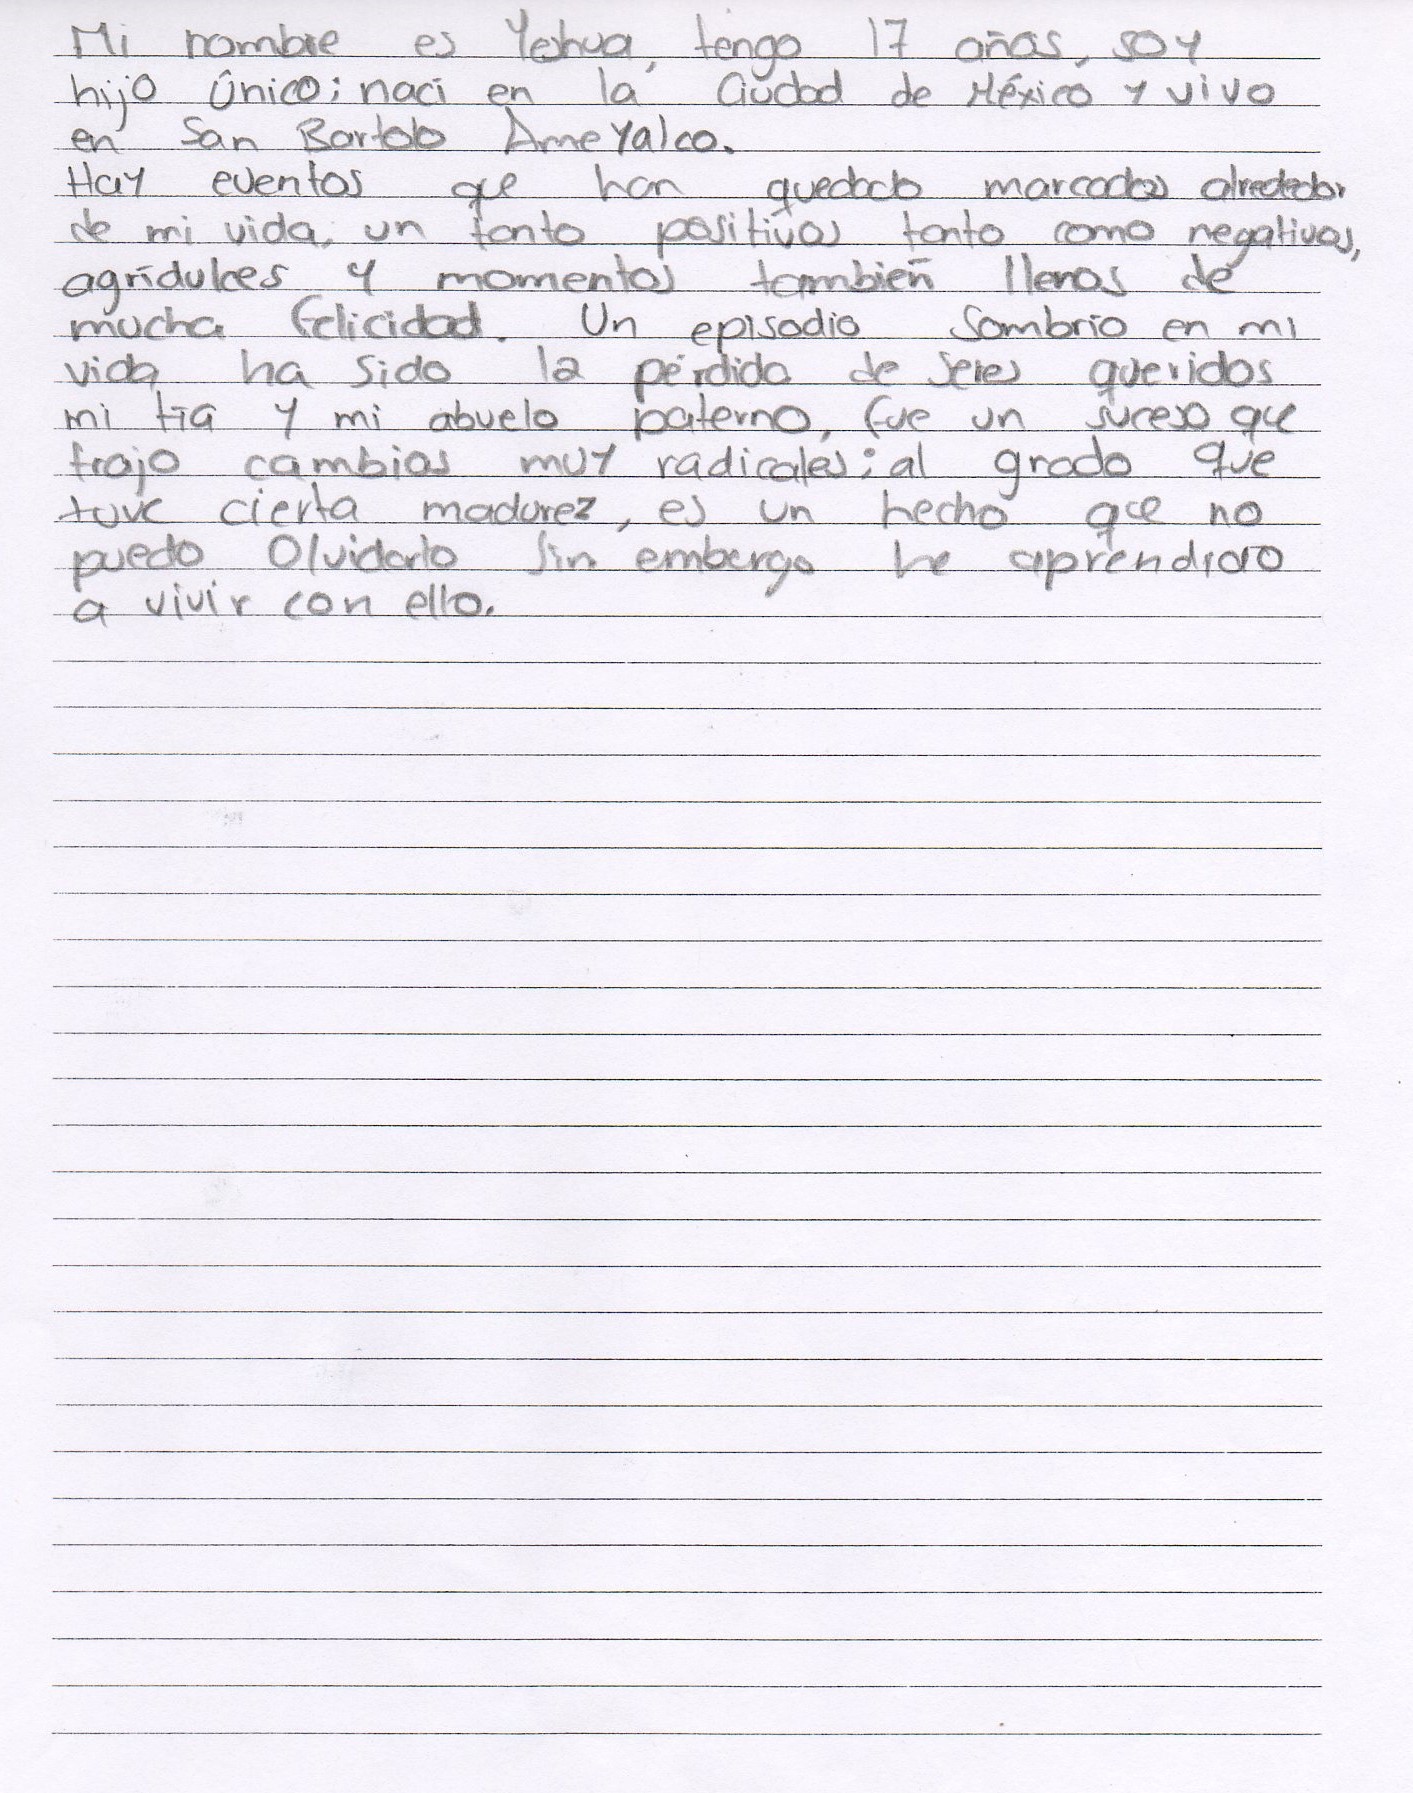 Mi nombre es Yeshua, tengo 17 años, soy
hijo único; nací en la Ciudad de México y vivo
en San Bartolo Ameyalco.
Hay eventos que han quedado marcados alrededor
de mi vida, un tanto positivos tanto como negativos,
agridulces y momentos también llenos de
mucha felicidad. Un episodio sombrío en mi
vida ha sido la pérdida de seres queridos
mi tía y mi abuelo paterno, fue un suceso que
trajo cambios muy radicales; al grado que
tuve cierta madurez, es un hecho que no
puedo olvidarlo sin embargo he aprendido
a vivir con ello.